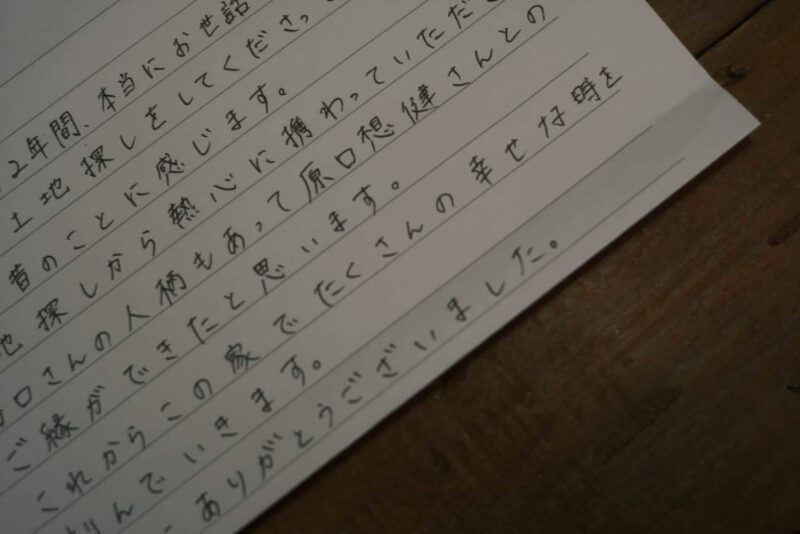 2年間、本当にお世話
土地探しをしてくださっ
昔のことに感じます。
地探しから熱心に携わっていただ
口さんの人柄もあって原口想健さんとの
ご縁ができたと思います。
これからこの家でたくさんの幸せな時を
んでいきます。
ありがとうございました。